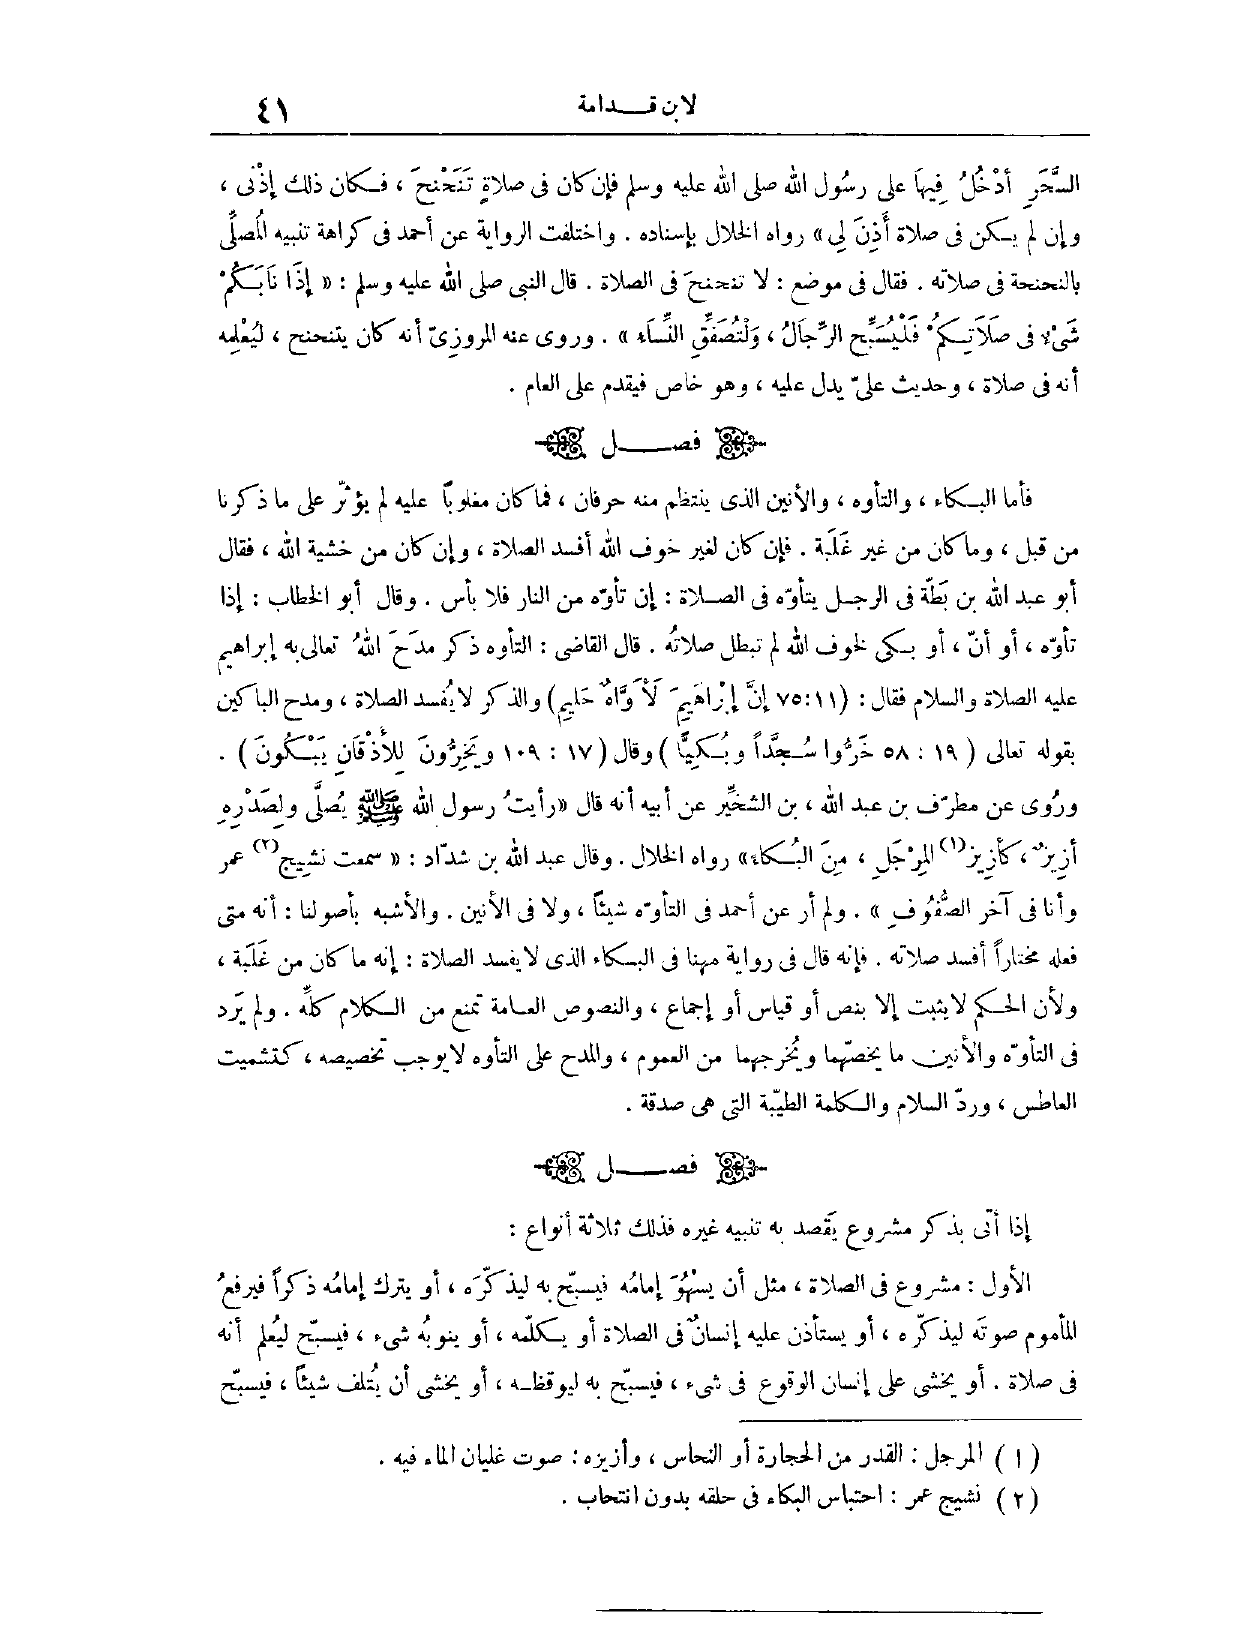 لابن قدامة
٤١
السَّحَرِ أَدْخُلُ فِيهَا على رسُول الله صلى الله عليه وسلم فإن كان فى صلاةٍ تَنَحْنَحَ ، فكان ذلك إِذْنى ،
وإن لم يكن فى صلاة أَذِنَ لِي » رواه الخلال بإسناده . واختلفت الرواية عن أحمد فى كراهة تنبيه المُصلَّى
بالنحنحة فى صلاته . فقال فى موضع : لا تنحنحَ فى الصلاة . قال النبى صلى الله عليه وسلم : « إِذَا نَابَكُمْ
شَىْءٌ فى صَلَاتِكُمْ فَلْيُسَبِّحِ الرِّجَالُ ، وَلْتُصَفِّقِ النِّسَاء » . وروى عنه المروزِىّ أنه كان يتنحنح ، ليُعْلِمه
أنه فى صلاة ، وحديث علىّ يدل عليه ، وهو خاص فيقدم على العام .
فصل
فأما البكاء ، والتأوه ، والأنين الذى ينتظم منه حرفان ، فما كان مغلوبًا عليه لم يؤثّر على ما ذكرنا
من قبل ، وما كان من غير غَلَبة . فإن كان لغير خوف الله أفسد الصلاة ، وإن كان من خشية الله ، فقال
أبو عبد الله بن بَطّة فى الرجل يتأوّه فى الصلاة : إن تأوّه من النار فلا بأس . وقال أبو الخطاب : إذا
تأوّه ، أو أنّ ، أو بكى لخوف الله لم تبطل صلاتُه . قال القاضى : التأوه ذكر مدَحَ اللهُ تعالى به إبراهيم
عليه الصلاة والسلام فقال : (١١:٧٥ إِنَّ إِبْرَاهِيمَ لَأَوَّاهٌ حَلِيم) والذكر لا يُفسد الصلاة ، ومدح الباكين
بقوله تعالى ( ١٩ : ٥٨ خَرُّوا سُجَّداً وبُكِيًّا ) وقال ( ١٧ : ١٠٩ ويَخِرُّونَ لِلأَذْقَانِ يَبْكُونَ ) .
ورُوى عن مطرّف بن عبد الله ، بن الشخِّير عن أبيه أنه قال «رأيتُ رسول الله ﷺ يُصلَّى ولِصَدْرِهِ
أزِيزٌ ، كَأَزِيز(١) المِرْجَلِ ، مِنَ البُكَاء» رواه الخلال . وقال عبد الله بن شدّاد : « سمعت نشِيج(٢) عمر
وأنا فى آخر الصُّفُوفِ » . ولم أر عن أحمد فى التأوّه شيئاً ، ولا فى الأنين . والأشبه بأصولنا : أنه متى
فعله مختاراً أفسد صلاته . فإنه قال فى رواية مهنا فى البكاء الذى لا يفسد الصلاة : إنه ما كان من غَلَبة ،
ولأن الحكم لا يثبت إلا بنص أو قياس أو إجماع ، والنصوص العامة تمنع من الكلام كلِّه . ولم يَرد
فى التأوّه والأنين ما يخصّهما ويُخرجهما من العموم ، والمدح على التأوه لا يوجب تخصيصه ، كتشميت
العاطس ، وردّ السلام والكلمة الطيّبة التى هى صدقة .
فصل
إذا أتى بذكر مشروع يَقصد به تنبيه غيره فذلك ثلاثة أنواع :
الأول : مشروع فى الصلاة ، مثل أن يسهُوَ إمامُه فيسبّح به ليذكّرَه ، أو يترك إمامُه ذكراً فيرفعُ
المأموم صوتَه ليذكّره ، أو يستأذن عليه إنسانٌ فى الصلاة أو يكلّمه ، أو ينوبُه شىء ، فيسبّح ليُعلم أنه
فى صلاة . أو يخشى على إنسان الوقوع فى شىء ، فيسبّح به ليوقظه ، أو يخشى أن يُتلف شيئاً ، فيسبّح
(١) المرجل : القدر من الحجارة أو النحاس ، وأزيزه : صوت غليان الماء فيه .
(٢) نشيج عمر : احتباس البكاء فى حلقه بدون انتحاب .